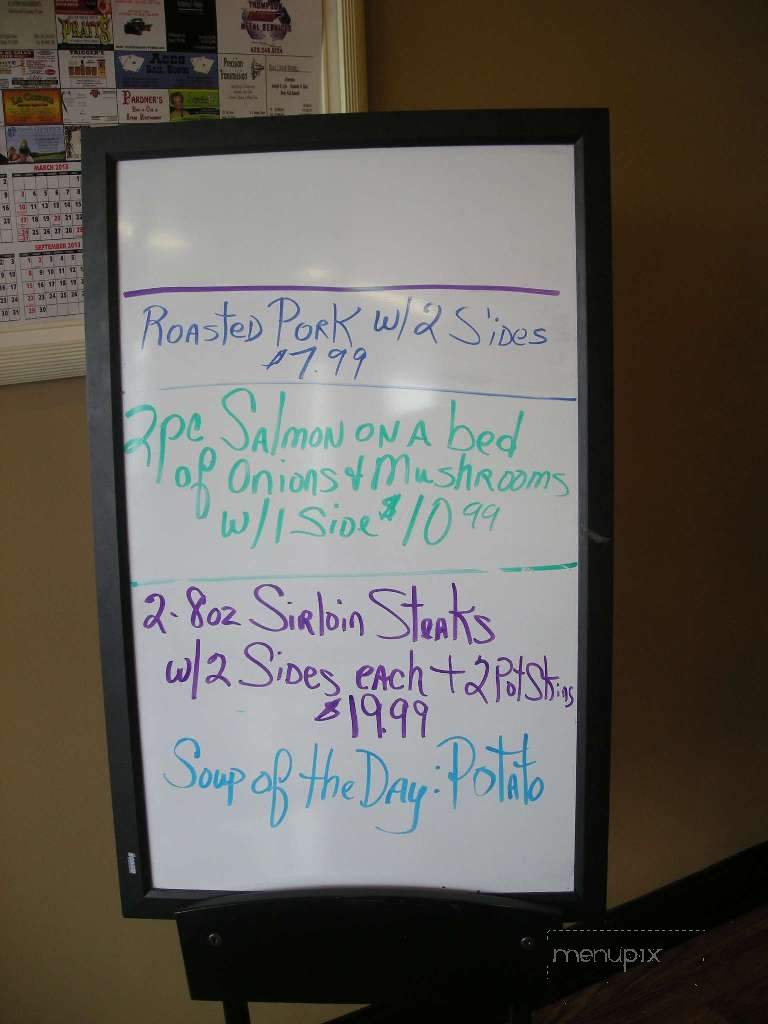 PRATT'S
THOMPSON
METAL SERVICES
ACES
Precision
Transmission
PARDNER'S
MARCH 2013
SEPTEMBER 2013
ROASTED PORK W/2 SIDES
$7.99
2pc SALMON ON A bed
of Onions & Mushrooms
w/1 SIDE $10 99
2-8oz SiRloin STEAKS
w/2 SIDES EACH + 2 Pot Skins
$19.99
Soup of the DAY: POTATO
menupix